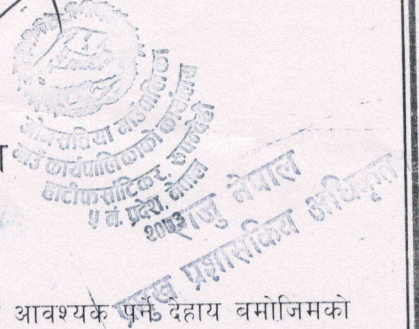 गाउँ कार्यपालिकाको कार्यालय
हाटीफर्साटिकर, रुपन्देही
५ नं. प्रदेश, नेपाल
२०७३
राजु नेपाल
प्रमुख प्रशासकिय अधिकृत
आवश्यक पर्ने देहाय बमोजिमको